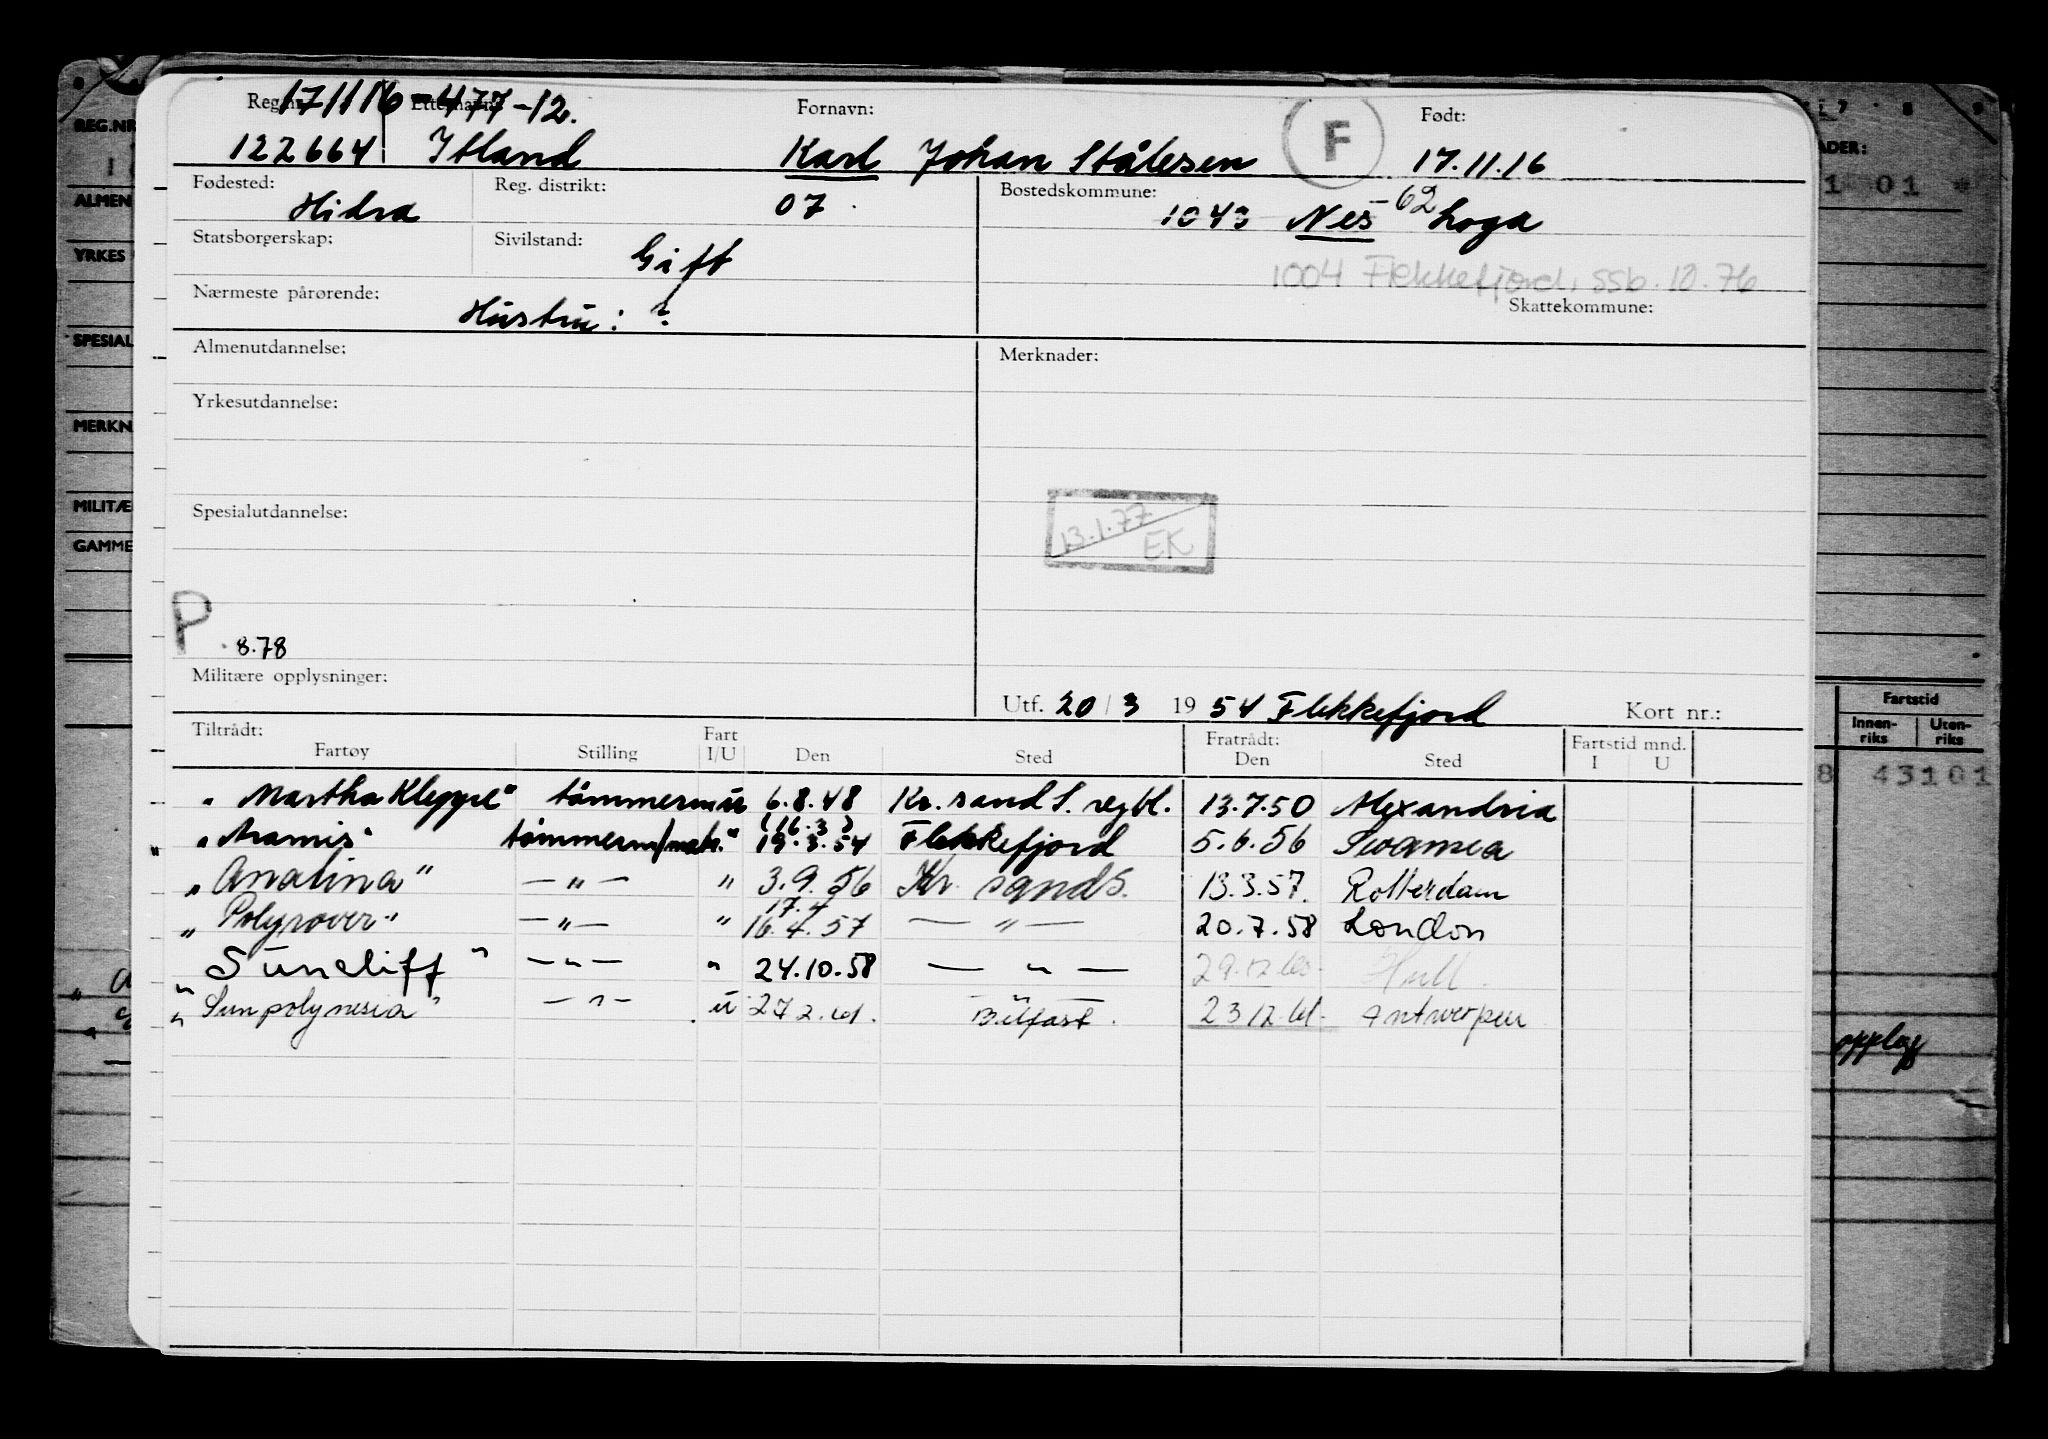 171116-477-12.
Reg.nr. Etternavn: Fornavn: F Født:
122664 Itland Karl Johan Stålesen 17.11.16
Fødested: Reg. distrikt: Bostedskommune:
Hidra 07 1043 Nes-62 Loga
Statsborgerskap: Sivilstand:
Gift
1004 Flekkefjord, ssb. 10.76
Nærmeste pårørende: Skattekommune:
Hustru: ?
Almenutdannelse: Merknader:
Yrkesutdannelse:
Spesialutdannelse:
13.1.77
EK
P. 8.78
Militære opplysninger:
Utf. 20/3 1954 Flekkefjord Kort nr.:
Tiltrådt: Fart Fratrådt: Fartstid mnd.
Fartøy Stilling I/U Den Sted Den Sted I U
"Martha Kleppe" tømmerm u 6.8.48 Kr. sand S. regbl. 13.7.50 Alexandria
(16.3)
"Aramis" tømmerm/matr. " 19.3.54 Flekkefjord 5.6.56 Swansea
"Analina" —"— " 3.9.56 Kr. sand S. 13.3.57. Rotterdam
17.4
"Polyrover" —"— " 16.4.57 —"— 20.7.58 London
"Suncliff" —"— " 24.10.58 —"— 29.12.60. Hull.
"Sunpolynesia" —"— u 27 2.61. Belfast. 23 12.61. Antwerpen
REG.NR
ALMEN
YRKES
SPESIAL
MERKN
MILITÆ
GAMME
7 8 9
ADER:
1 01 *
Fartstid
Innen-
riks
Uten-
riks
8 43101
opplag